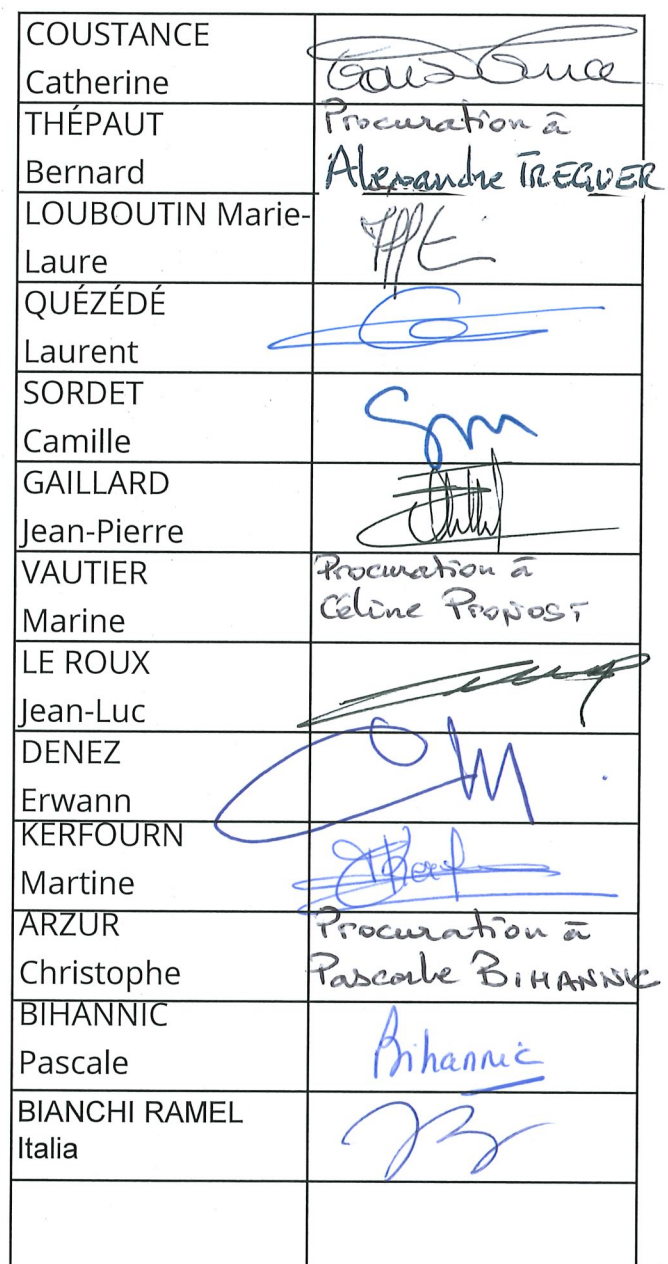 COUSTANCE
Catherine
THÉPAUT
Procuration à
Bernard
Alexandre TREGUER
LOUBOUTIN Marie-
Laure
QUÉZÉDÉ
Laurent
SORDET
Camille
GAILLARD
Jean-Pierre
VAUTIER
Procuration à
Marine
Céline PRONOST
LE ROUX
Jean-Luc
DENEZ
Erwann
KERFOURN
Martine
ARZUR
Procuration à
Christophe
Pascale BIHANNIC
BIHANNIC
Pascale
Bihannic
BIANCHI RAMEL
Italia